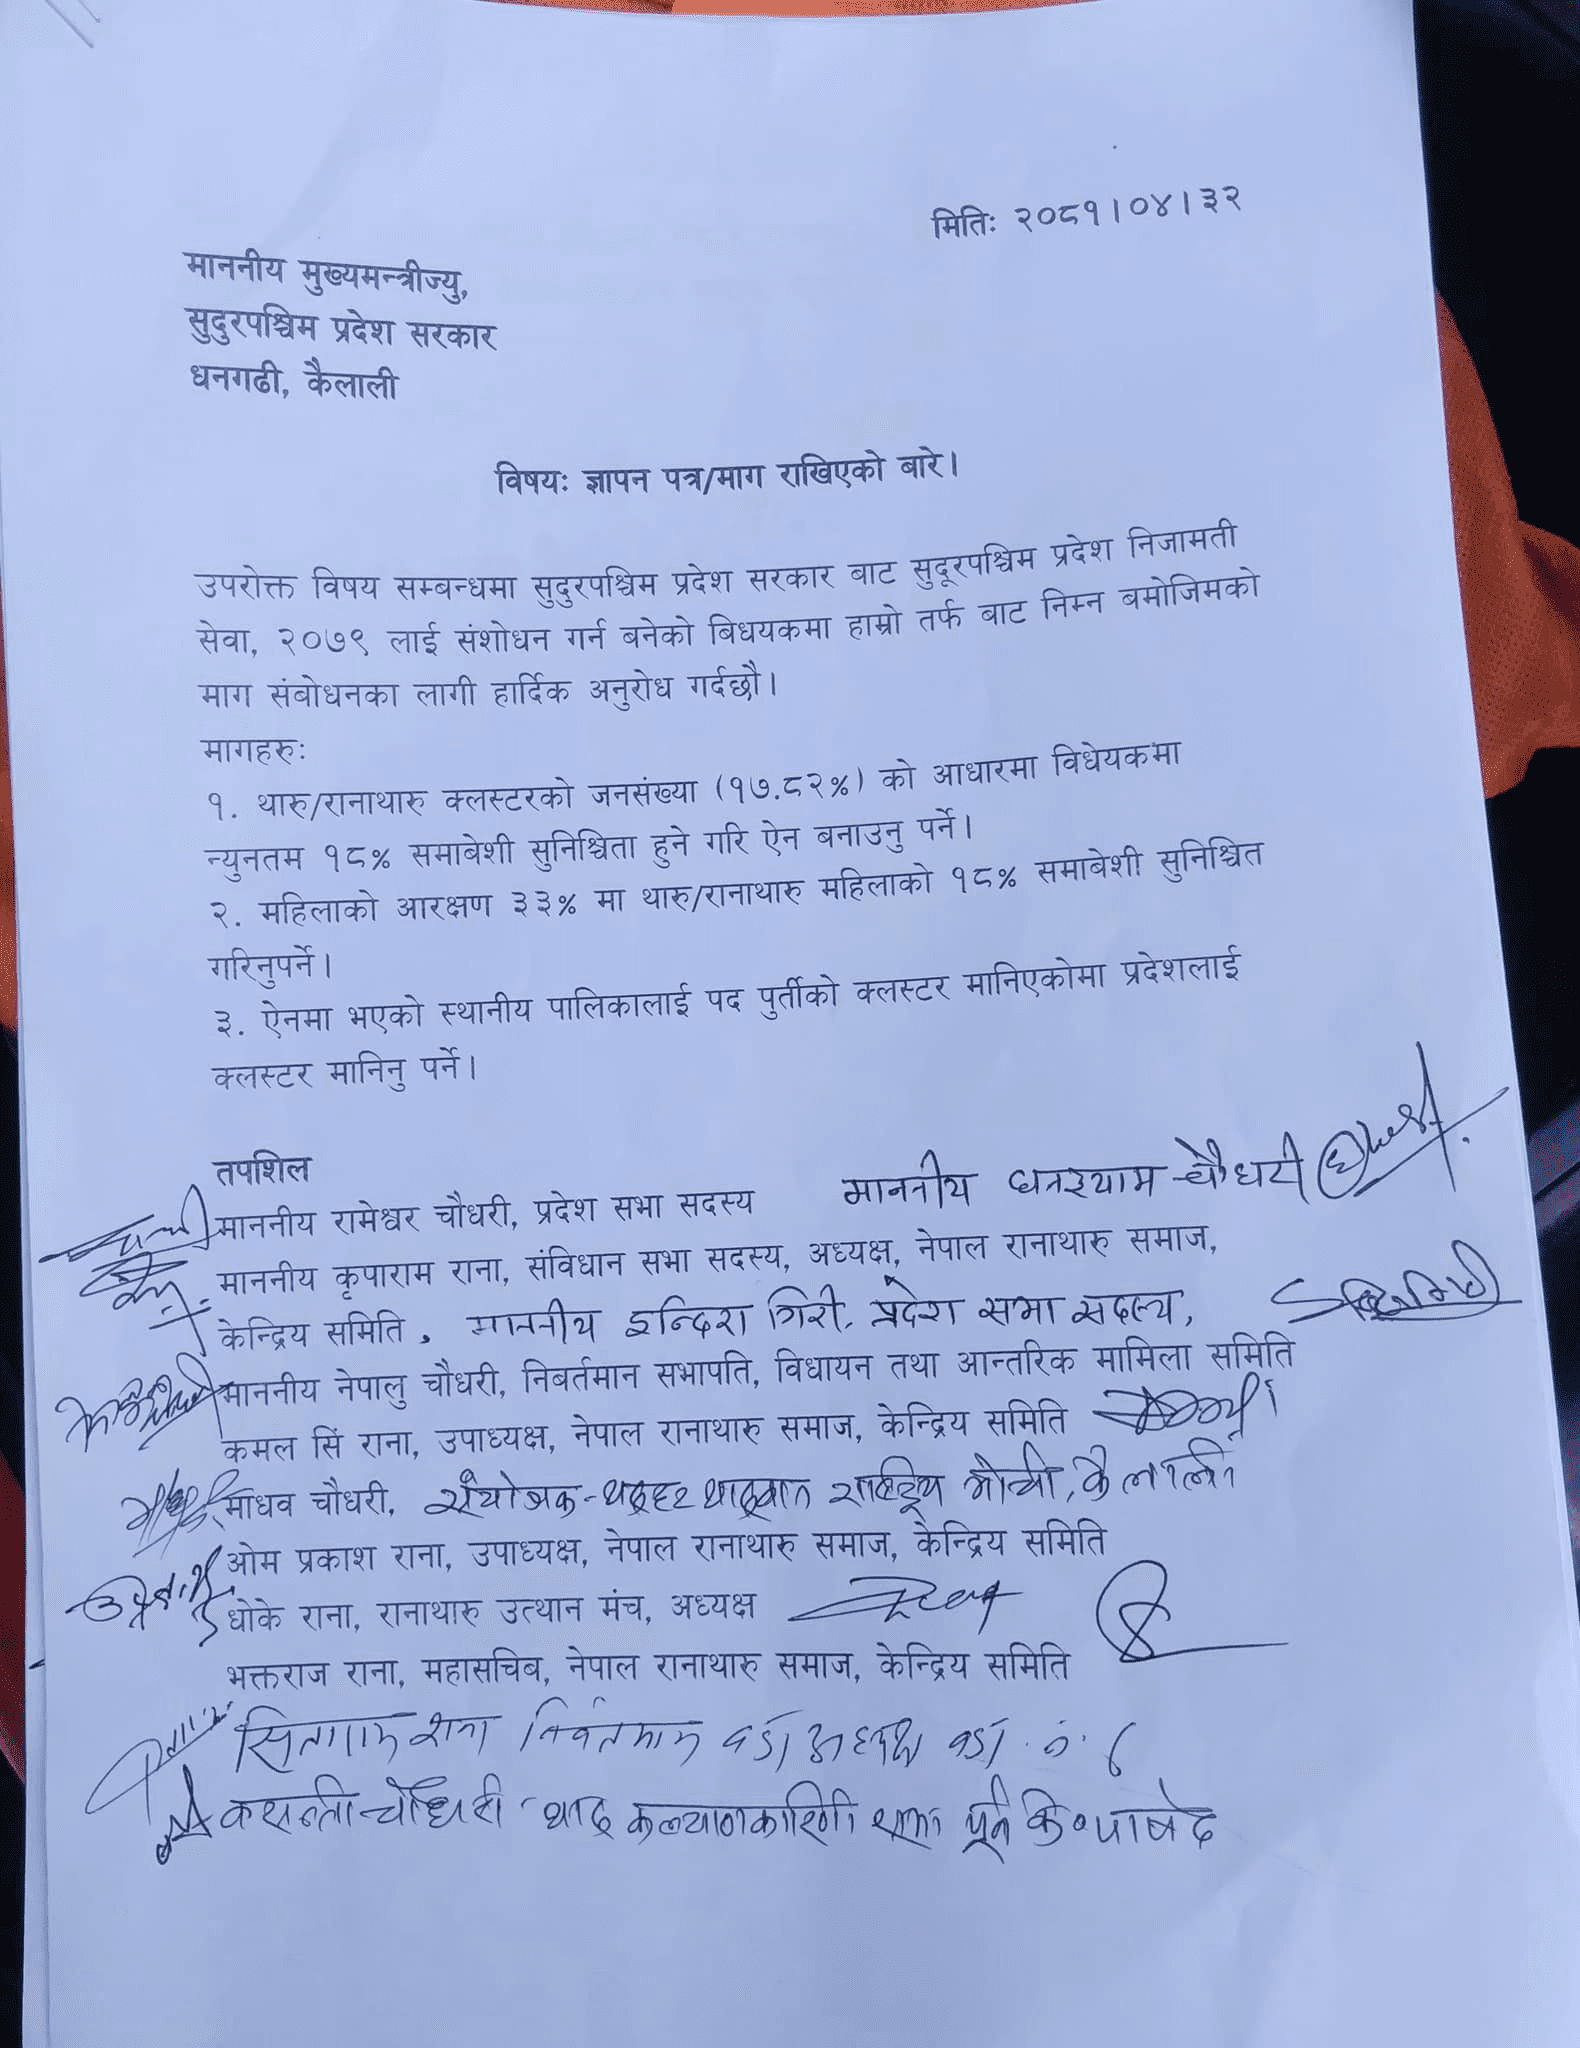 मितिः २०८१।०४।३२
माननीय मुख्यमन्त्रीज्यु,
सुदुरपश्चिम प्रदेश सरकार
धनगढी, कैलाली
विषयः ज्ञापन पत्र/माग राखिएको बारे।
उपरोक्त विषय सम्बन्धमा सुदुरपश्चिम प्रदेश सरकार बाट सुदूरपश्चिम प्रदेश निजामती
सेवा, २०७९ लाई संशोधन गर्न बनेको बिधयकमा हाम्रो तर्फ बाट निम्न बमोजिमको
माग संबोधनका लागी हार्दिक अनुरोध गर्दछौ।
मागहरुः
१. थारु/रानाथारु क्लस्टरको जनसंख्या (१७.८२%) को आधारमा विधेयकमा
न्युनतम १८% समाबेशी सुनिश्चिता हुने गरि ऐन बनाउनु पर्ने।
२. महिलाको आरक्षण ३३% मा थारु/रानाथारु महिलाको १८% समाबेशी सुनिश्चित
गरिनुपर्ने।
३. ऐनमा भएको स्थानीय पालिकालाई पद पुर्तीको क्लस्टर मानिएकोमा प्रदेशलाई
क्लस्टर मानिनु पर्ने।
तपशिल
माननीय रामेश्वर चौधरी, प्रदेश सभा सदस्य माननीय घनश्याम चौधरी
माननीय कृपाराम राना, संविधान सभा सदस्य, अध्यक्ष, नेपाल रानाथारु समाज,
केन्द्रिय समिति, माननीय इन्दिरा गिरी, प्रदेश सभा सदस्य,
माननीय नेपालु चौधरी, निबर्तमान सभापति, विधायन तथा आन्तरिक मामिला समिति
कमल सिं राना, उपाध्यक्ष, नेपाल रानाथारु समाज, केन्द्रिय समिति
माधव चौधरी, संयोजक-थरुहट थारुवान राष्ट्रिय मोर्चा, कैलाली
ओम प्रकाश राना, उपाध्यक्ष, नेपाल रानाथारु समाज, केन्द्रिय समिति
धोके राना, रानाथारु उत्थान मंच, अध्यक्ष
भक्तराज राना, महासचिब, नेपाल रानाथारु समाज, केन्द्रिय समिति
सिताराम राना निवर्तमान वडा अध्यक्ष वडा नं. ६
बसन्ती चौधरी थारु कल्याणकारिणी सभा पूर्व के०पार्षद